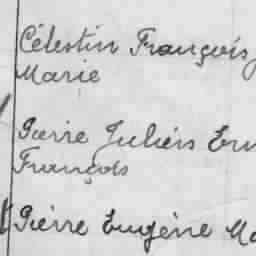 Célestin François
Marie
Pierre Juliens
François
Pierre Eugène